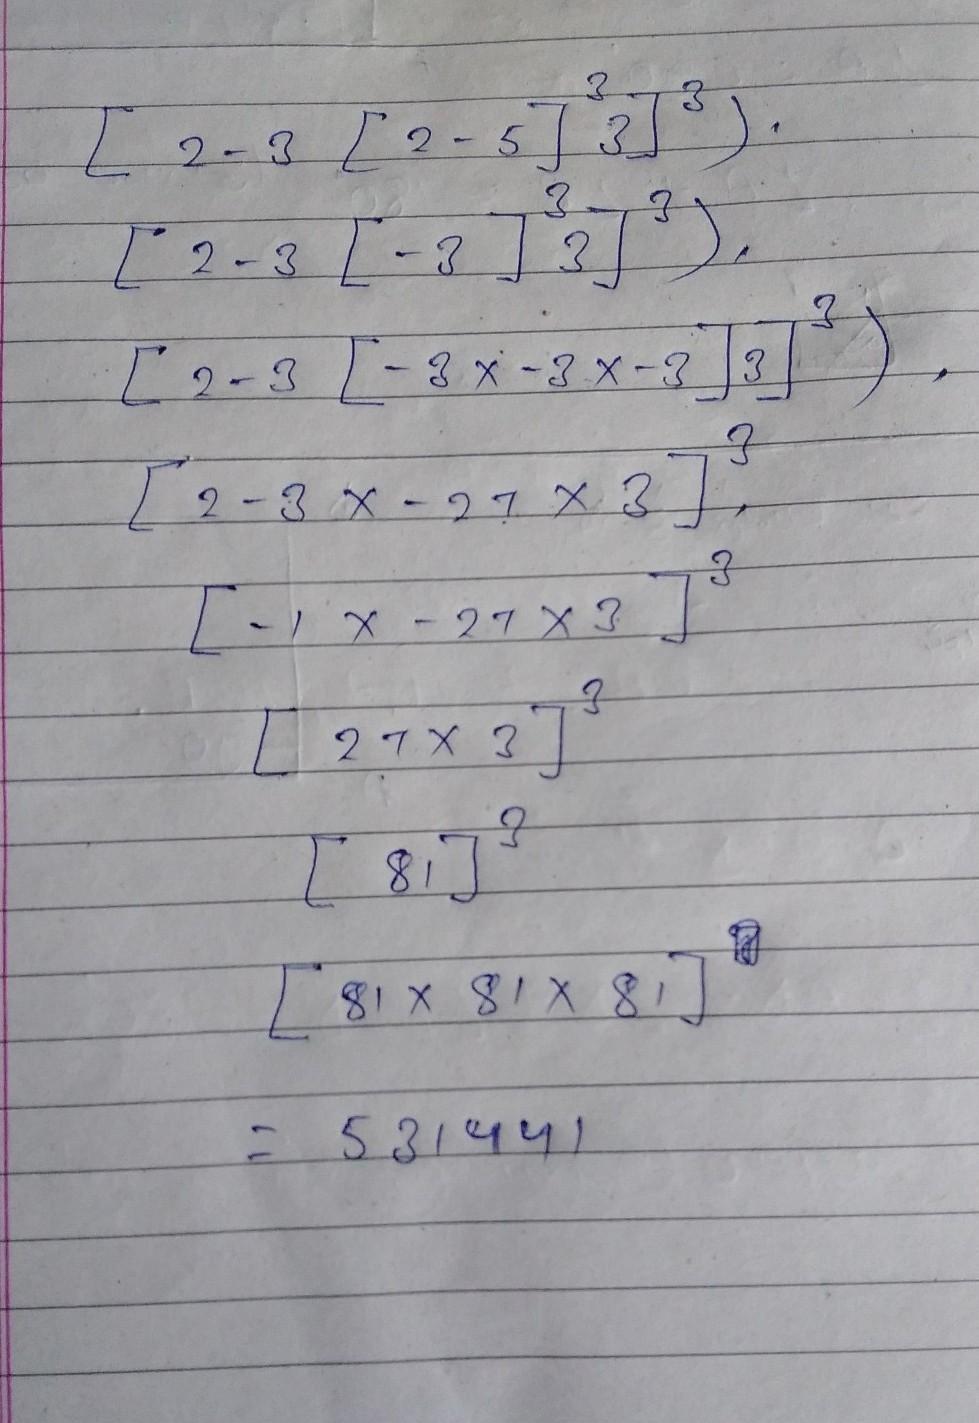 [ 2 - 3 [ 2 - 5 ]³ 3 ]³ ) .
[ 2 - 3 [ - 3 ]³ 3 ]³ ) .
[ 2 - 3 [ - 3 x - 3 x - 3 ] 3 ]³ ) .
[ 2 - 3 x - 27 x 3 ]³ .
[ - 1 x - 27 x 3 ]³
[ 27 x 3 ]³
[ 81 ]³
[ 81 x 81 x 81 ]
= 531441